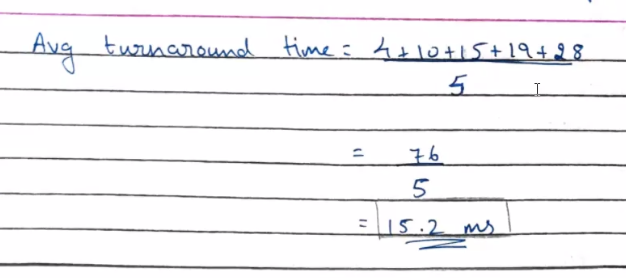 Avg turnaround time = 4+10+15+19+28
5
= 76
5
= 15.2 ms